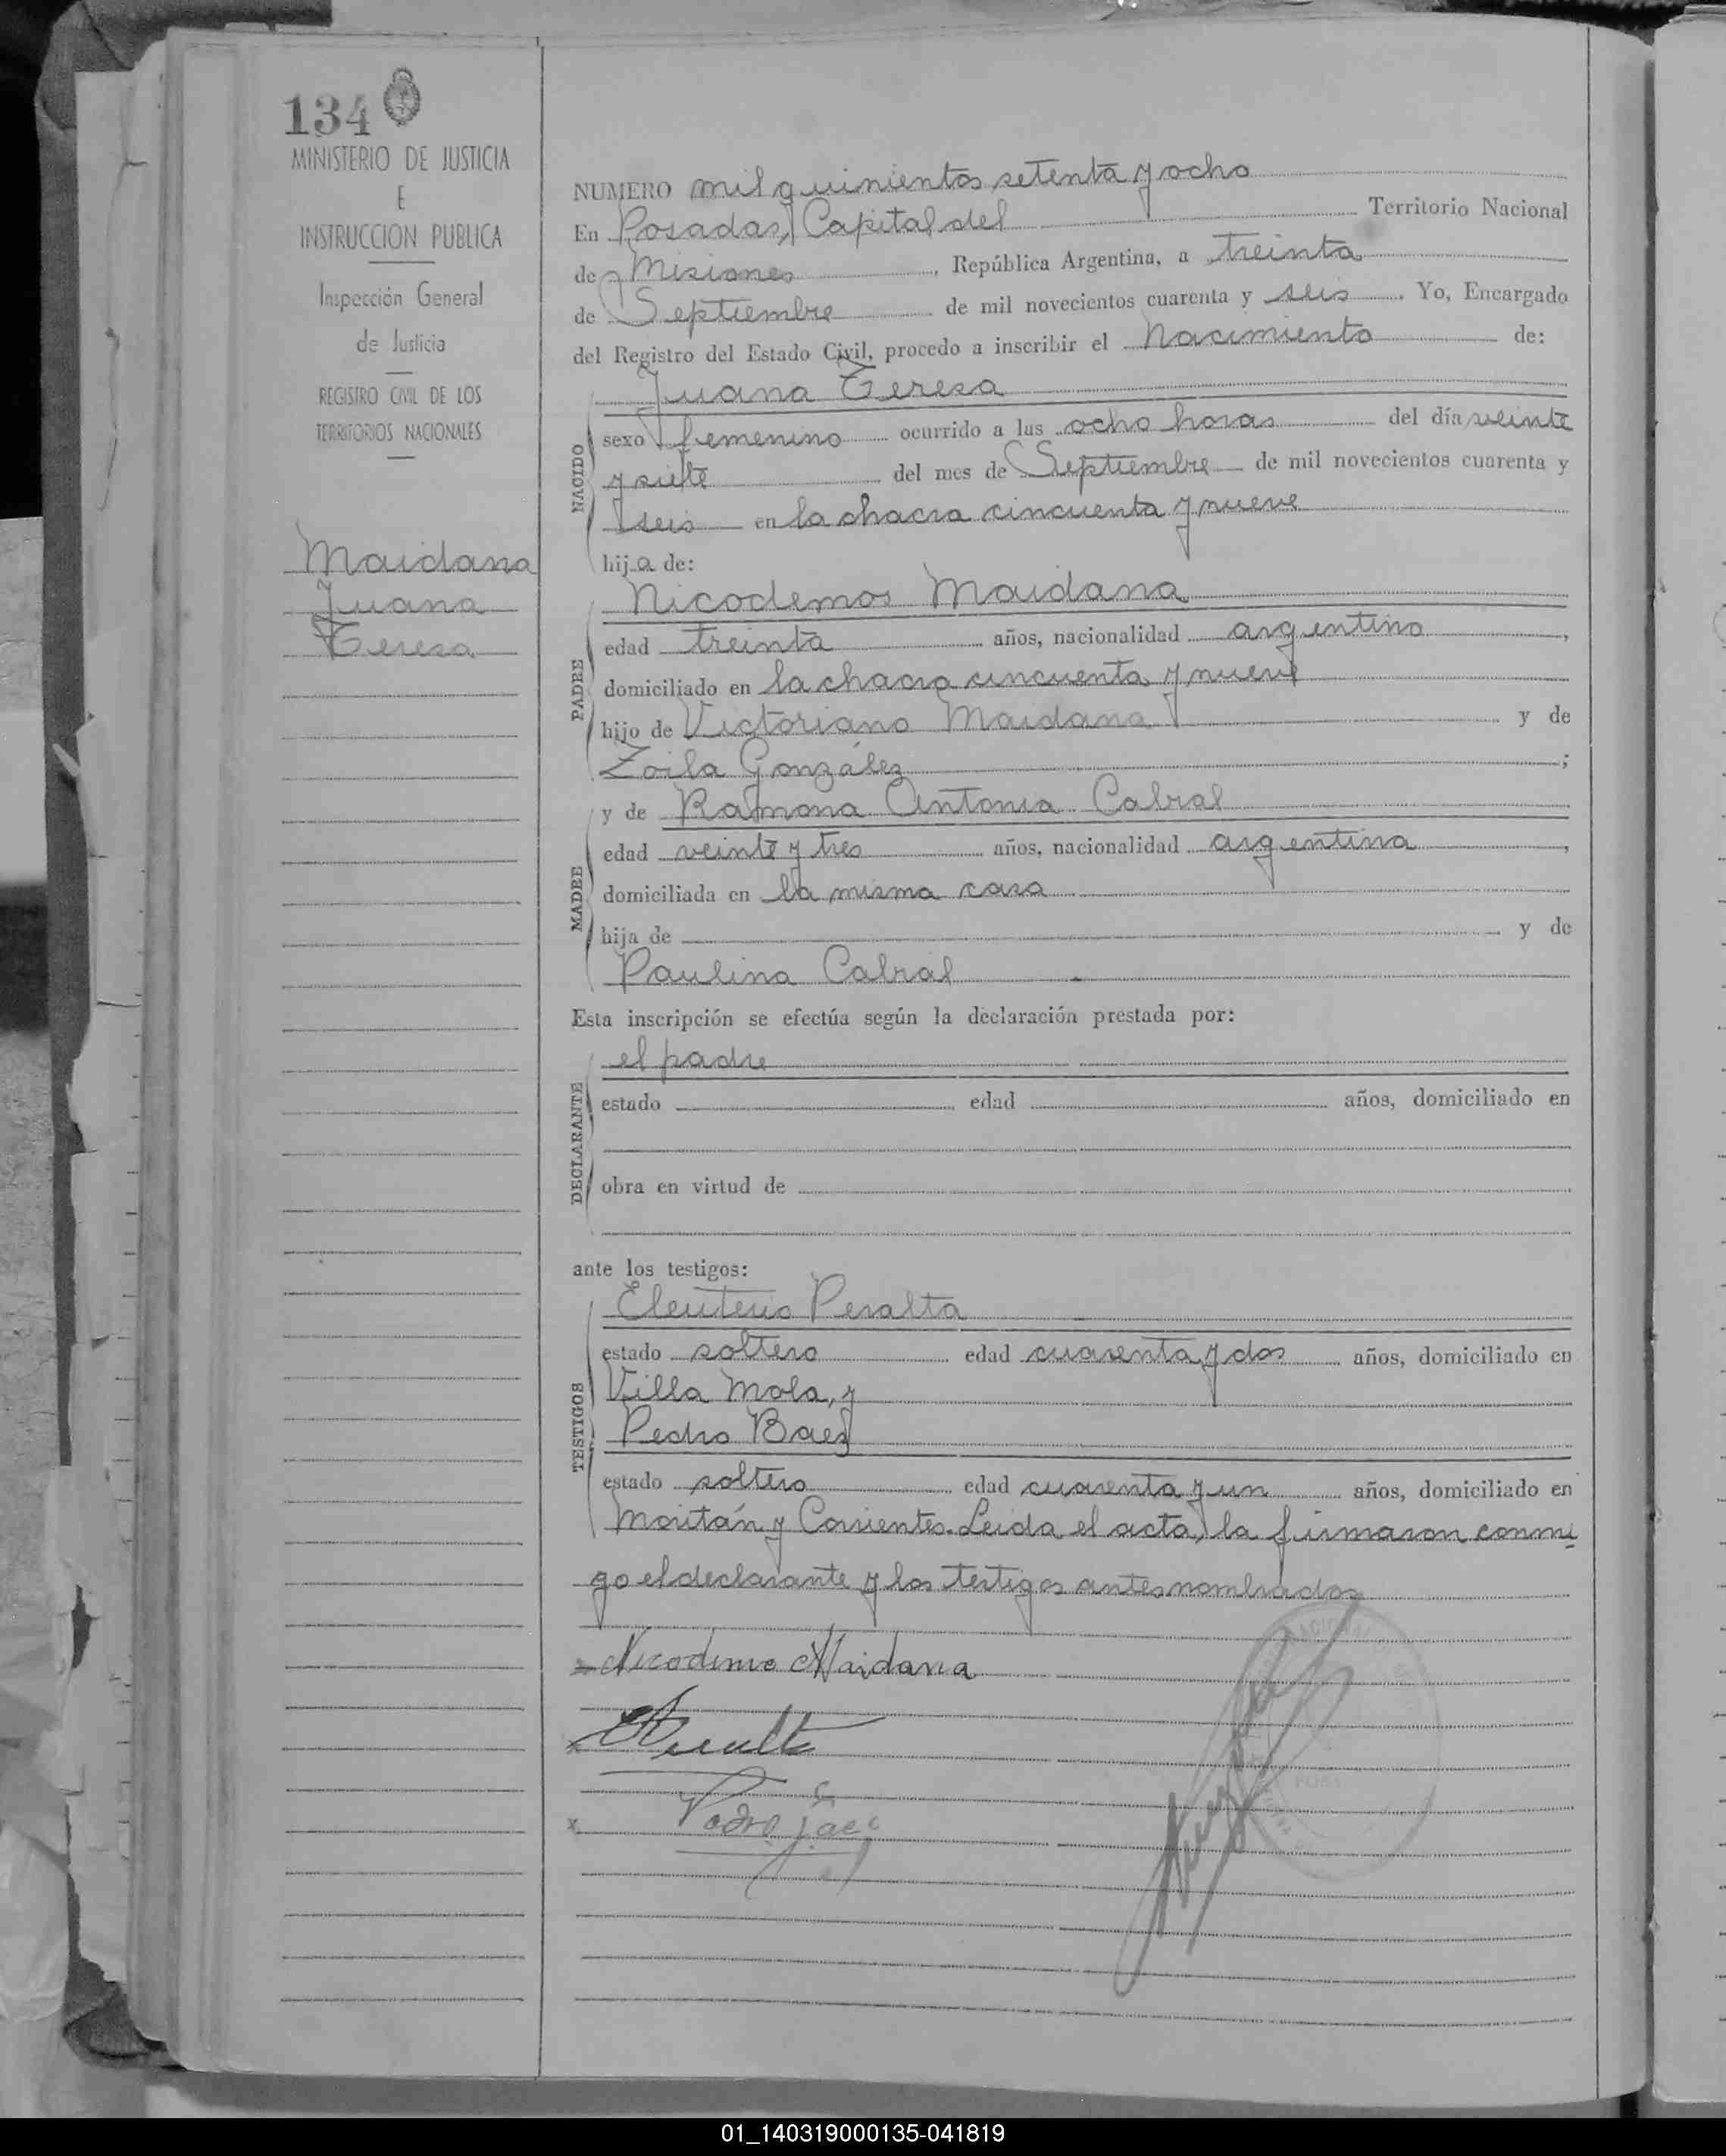 134
MINISTERIO DE JUSTICIA
E
INSTRUCCION PUBLICA
Inspección General
de Justicia
REGISTRO CIVIL DE LOS
TERRITORIOS NACIONALES
Maidana
Juana
Teresa
NUMERO mil quinientos setenta y ocho
En Posadas, Capital del Territorio Nacional
de Misiones, República Argentina, a treinta
de Septiembre de mil novecientos cuarenta y seis. Yo, Encargado
del Registro del Estado Civil, procedo a inscribir el Nacimiento de:
Juana Teresa
NACIDO
sexo femenino ocurrido a las ocho horas del día veinte
y siete del mes de Septiembre de mil novecientos cuarenta y
seis en la chacra cincuenta y nueve
hija de:
Nicodemos Maidana
PADRE
edad treinta años, nacionalidad argentino,
domiciliado en la chacra cincuenta y nueve
hijo de Victoriano Maidana y de
Zoila González;
y de Ramona Antonia Cabral
MADRE
edad veinte y tres años, nacionalidad argentina,
domiciliada en la misma casa
hija de y de
Paulina Cabral
Esta inscripción se efectúa según la declaración prestada por:
el padre
DECLARANTE
estado edad años, domiciliado en
obra en virtud de
ante los testigos:
Eleuterio Peralta
TESTIGOS
estado soltero edad cuarenta y dos años, domiciliado en
Villa Mola, y
Pedro Baez
estado soltero edad cuarenta y un años, domiciliado en
Moritán y Corrientes. Leida el acta, la firmaron conmi
go el declarante y los testigos antes nombrados
Nicodemo Maidana
01_140319000135-041819